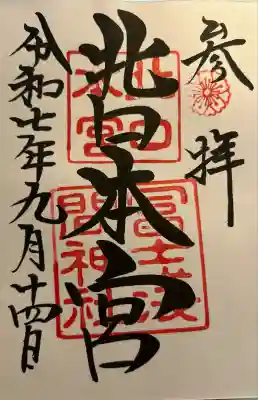 参拝
北口本宮
冨士浅
間神社
令和七年九月十四日